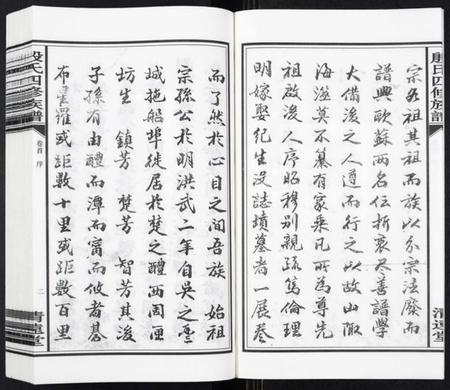 殷氏四修族譜
清遠堂
宗各祖其祖而族以分宗法廢而
譜興歐蘇兩名位折衷尽善譜學
大備後之人遵而行之以故山陬
海澨莫不纂有家乘凡所為尊先
祖啟後人序昭穆别親疏篤倫理
明嫁娶紀生没誌墳墓者一展卷
而了然於心目之间吾族 始祖
宗孫公於明洪武二年自吳之雲
城拖船埠徙居於楚之醴西周匣
坊生 鎮芳 楚芳 智芳其後
子孫有由醴而潭而甯而攸者碁
布星羅或距數十里或距數百里
殷氏四修族譜
卷首 序
二
清遠堂